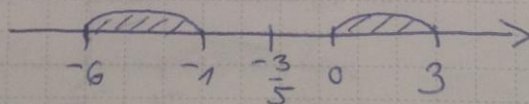 -6 -1 -3/5 0 3